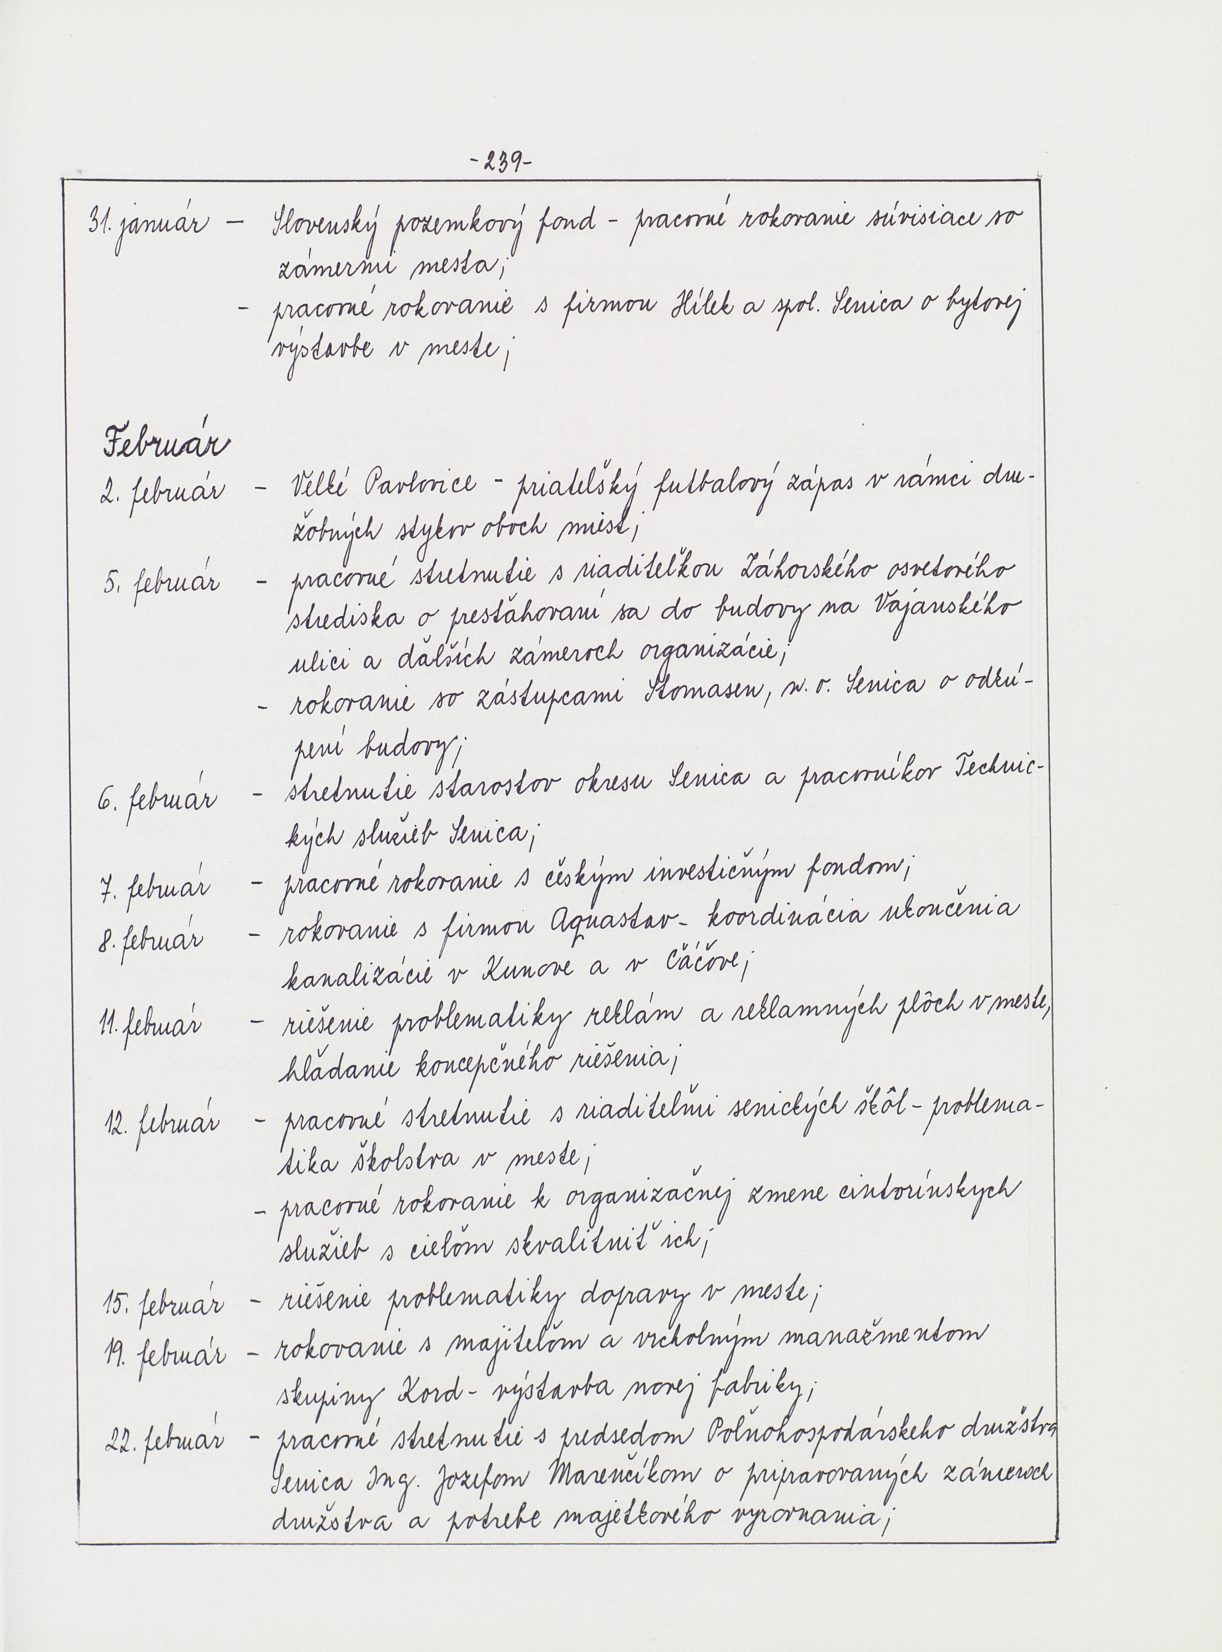 -239-
31. január - Slovenský pozemkový fond - pracovné rokovanie súvisiace so
zámermi mesta;
- pracovné rokovanie s firmou Hílek a spol. Senica o bytovej
výstavbe v meste;
Február
2. február - Velké Pavlovice - priateľský futbalový zápas v rámci dru-
žobných stykov oboch miest;
5. február - pracovné stretnutie s riaditeľkou Záhorského osvetového
strediska o presťahovaní sa do budovy na Vajanského
ulici a ďalších zámeroch organizácie;
- rokovanie so zástupcami Stomasen, n. o. Senica o odkú-
pení budovy;
6. február - stretnutie starostov okresu Senica a pracovníkov Technic-
kých služieb Senica;
7. február - pracovné rokovanie s českým investičným fondom;
8. február - rokovanie s firmou Aquastav - koordinácia ukončenia
kanalizácie v Kunove a v Čáčove;
11. február - riešenie problematiky reklám a reklamných plôch v meste,
hľadanie koncepčného riešenia;
12. február - pracovné stretnutie s riaditeľmi senických škôl - problema-
tika školstva v meste;
- pracovné rokovanie k organizačnej zmene cintorínskych
služieb s cieľom skvalitniť ich;
15. február - riešenie problematiky dopravy v meste;
19. február - rokovanie s majiteľom a vrcholným manažmentom
skupiny Kord - výstavba novej fabriky;
22. február - pracovné stretnutie s predsedom Poľnohospodárskeho družstva
Senica Ing. Jozefom Marenčíkom o pripravovaných zámeroch
družstva a potrebe majetkového vyrovnania;